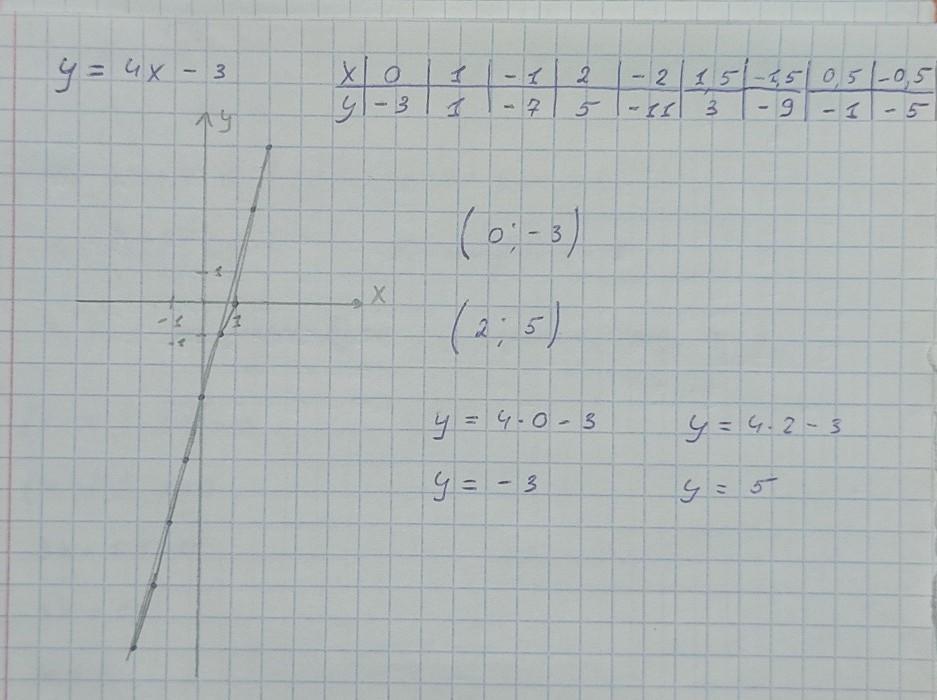 y = 4x - 3
x | 0 | 1 | -1 | 2 | -2 | 1,5 | -1,5 | 0,5 | -0,5
y | -3 | 1 | -7 | 5 | -11 | 3 | -9 | -1 | -5
y
1
x
-1 1
-1
(0; -3)
(2; 5)
y = 4·0 - 3 y = 4·2 - 3
y = -3 y = 5